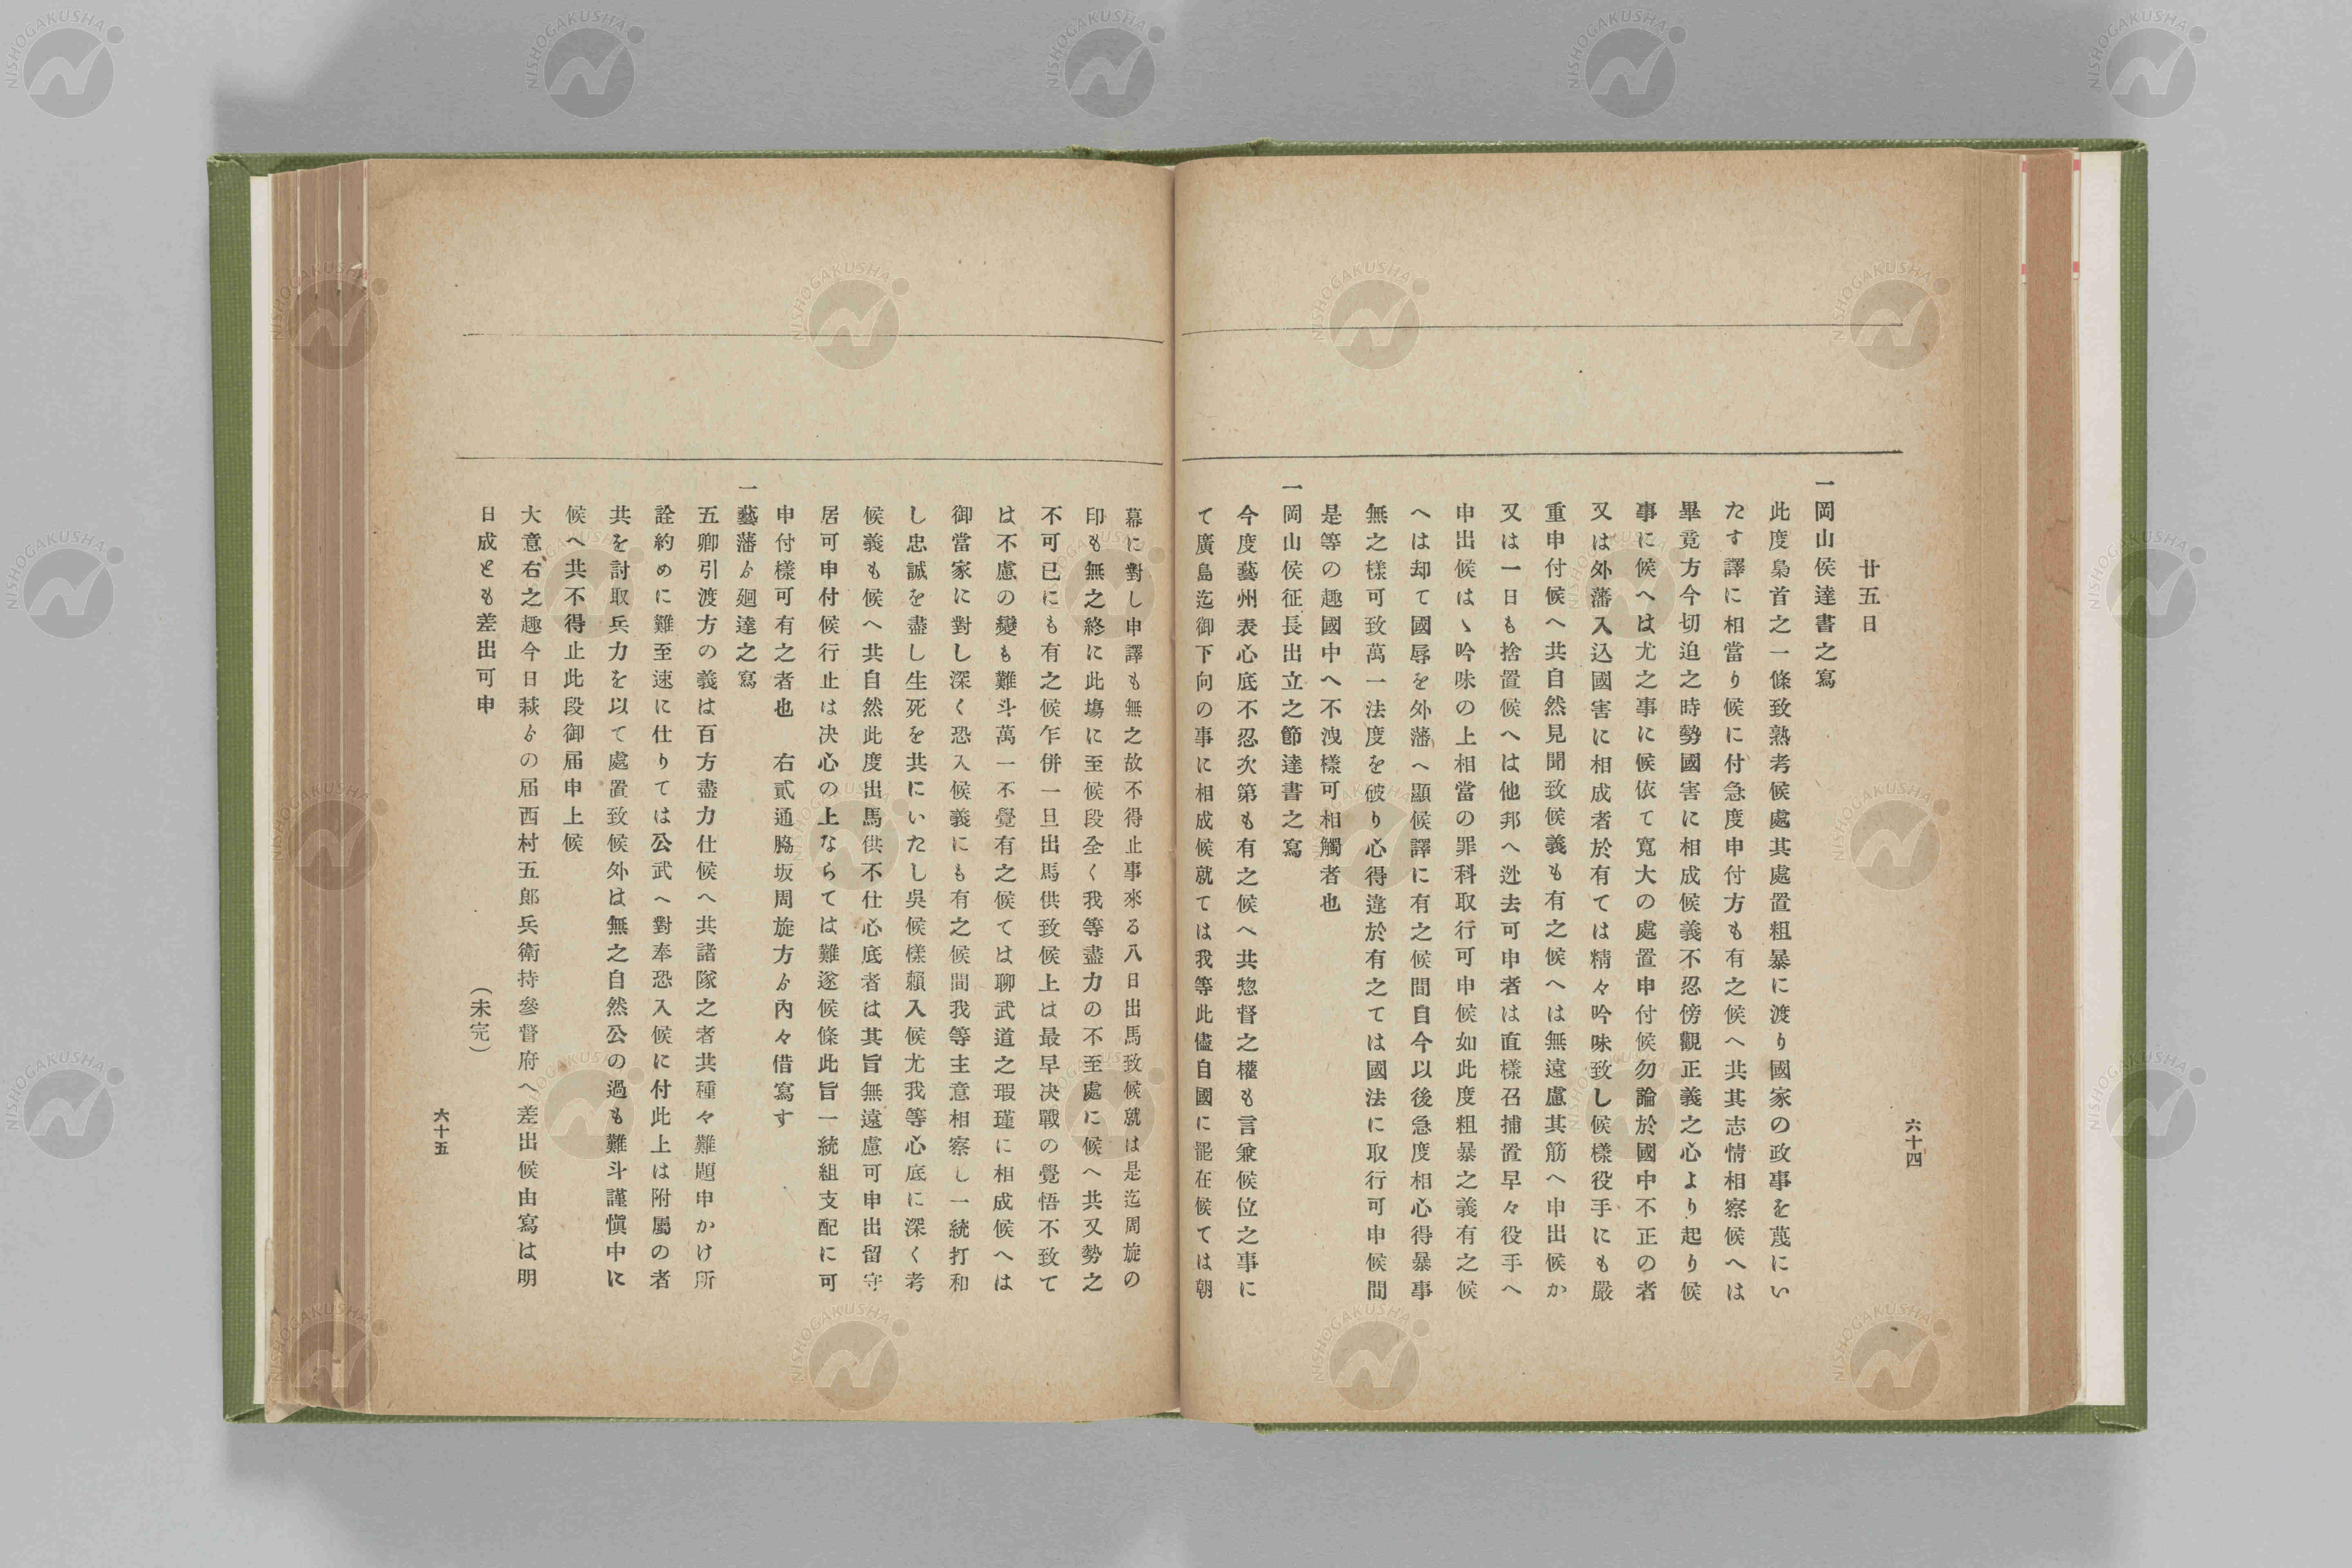 六十四
廿五日
一岡山侯達書之寫
此度梟首之一條致熟考候處其處置粗暴に渡り國家の政事を蔑にい
たす譯に相當り候に付急度申付方も有之候へ共其志情相察候へは
畢竟方今切迫之時勢國害に相成候義不忍傍觀正義之心より起り候
事に候へは尤之事に候依て寬大の處置申付候勿論於國中不正の者
又は外藩入込國害に相成者於有ては精々吟味致し候樣役手にも嚴
重申付候へ共自然見聞致候義も有之候へは無遠慮其筋へ申出候か
又は一日も捨置候へは他邦へ迯去可申者は直樣召捕置早々役手へ
申出候はゝ吟味の上相當の罪科取行可申候如此度粗暴之義有之候
へは却て國辱を外藩へ顯候譯に有之候間自今以後急度相心得暴事
無之樣可致萬一法度を破り心得違於有之ては國法に取行可申候間
是等の趣國中へ不洩樣可相觸者也
一岡山侯征長出立之節達書之寫
今度藝州表心底不忍次第も有之候へ共惣督之權も言兼候位之事に
て廣島迄御下向の事に相成候就ては我等此儘自國に罷在候ては朝
幕に對し申譯も無之故不得止事來る八日出馬致候就は是迄周旋の
印も無之終に此塲に至候段全く我等盡力の不至處に候へ共又勢之
不可已にも有之候乍併一旦出馬供致候上は最早决戰の覺悟不致て
は不慮の變も難斗萬一不覺有之候ては聊武道之瑕瑾に相成候へは
御當家に對し深く恐入候義にも有之候間我等主意相察し一統打和
し忠誠を盡し生死を共にいたし吳候樣賴入候尤我等心底に深く考
候義も候へ共自然此度出馬供不仕心底者は其旨無遠慮可申出留守
居可申付候行止は决心の上ならては難遂候條此旨一統組支配に可
申付樣可有之者也　右貳通脇坂周旋方ゟ內々借寫す
一藝藩ゟ廻達之寫
五卿引渡方の義は百方盡力仕候へ共諸隊之者共種々難題申かけ所
詮約めに難至速に仕りては公武へ對奉恐入候に付此上は附屬の者
共を討取兵力を以て處置致候外は無之自然公の過も難斗謹愼中に
候へ共不得止此段御届申上候
大意右之趣今日萩ゟの届西村五郎兵衛持參督府へ差出候由寫は明
日成とも差出可申
（未完）
六十五
NISHOGAKUSHA